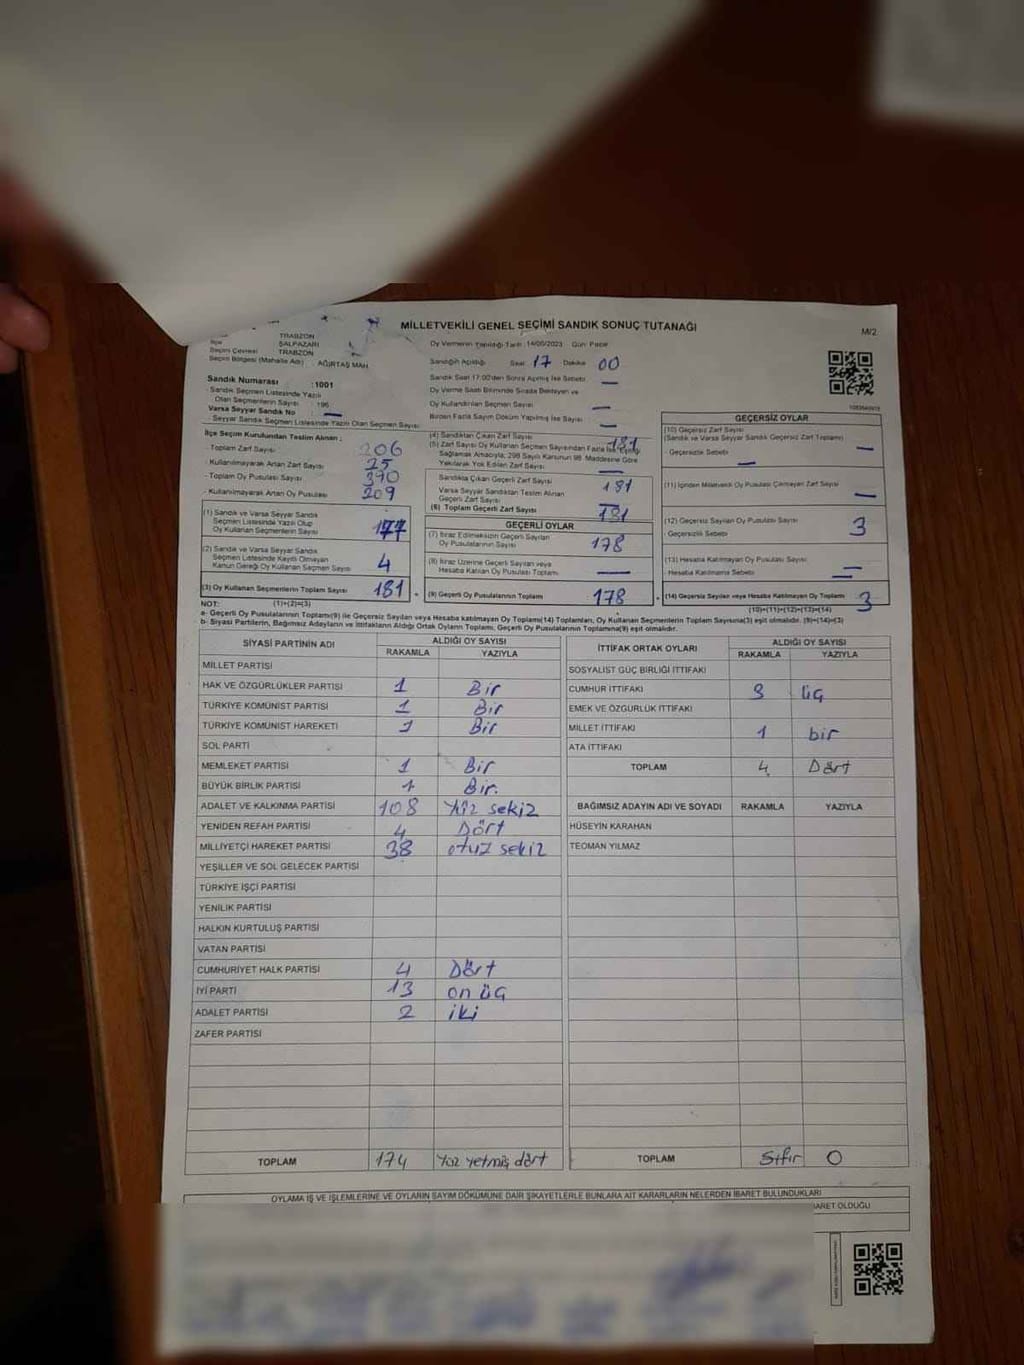 MİLLETVEKİLİ GENEL SEÇİMİ SANDIK SONUÇ TUTANAĞI
M/2
TRABZON
İlçe ŞALPAZARI
Seçim Çevresi TRABZON
Seçim Bölgesi (Mahalle Adı) : AĞIRTAŞ MAH.
Sandık Numarası :1001
Sandık Seçmen Listesinde Yazılı
Olan Seçmenlerin Sayısı : 196
Varsa Seyyar Sandık No : —
Seyyar Sandık Seçmen Listesinde Yazılı Olan Seçmen Sayısı:
İlçe Seçim Kurulundan Teslim Alınan :
- Toplam Zarf Sayısı 206
- Kullanılmayarak Artan Zarf Sayısı 25
- Toplam Oy Pusulası 390
- Kullanılmayarak Artan Oy Pusulası 209
(1) Sandık ve Varsa Seyyar Sandık
Seçmen Listesinde Yazılı Olup
Oy Kullanan Seçmenlerin Sayısı 177
(2) Sandık ve Varsa Seyyar Sandık
Seçmen Listesinde Kayıtlı Olmayan
Kanun Gereği Oy Kullanan Seçmen Sayısı 4
(3) Oy Kullanan Seçmenlerin Toplam Sayısı 181
(1)+(2)=(3)
Oy Vermenin Yapıldığı Tarih :14/05/2023 Gün: Pazar
Sandığın Açıldığı Saat 17 Dakika 00
Sandık Saat 17.00'den Sonra Açılmış İse Sebebi —
Oy Verme Saati Bitiminde Sırada Bekleyen ve
Oy Kullandırılan Seçmen Sayısı —
Birden Fazla Sayım Döküm Yapılmış İse Sayısı —
(4) Sandıktan Çıkan Zarf Sayısı 181
(5) Zarf Sayısı Oy Kullanan Seçmen Sayısından Fazla İse, Eşitliği
Sağlamak Amacıyla, 298 Sayılı Kanunun 98. Maddesine Göre
Yakılarak Yok Edilen Zarf Sayısı —
Sandıkta Çıkan Geçerli Zarf Sayısı 181
Varsa Seyyar Sandıktan Teslim Alınan
Geçerli Zarf Sayısı —
(6) Toplam Geçerli Zarf Sayısı 181
GEÇERLİ OYLAR
(7) İtiraz Edilmeksizin Geçerli Sayılan
Oy Pusulalarının Sayısı 178
(8) İtiraz Üzerine Geçerli Sayılan veya
Hesaba Katılan Oy Pusulası Toplamı —
(9) Geçerli Oy Pusulalarının Toplamı 178
GEÇERSİZ OYLAR
(10) Geçersiz Zarf Sayısı
(Sandık ve Varsa Seyyar Sandık Geçersiz Zarf Toplamı) —
- Geçersizlik Sebebi: —
(11) İçinden Milletvekili Oy Pusulası Çıkmayan Zarf Sayısı —
(12) Geçersiz Sayılan Oy Pusulası Sayısı 3
- Geçersizlik Sebebi
(13) Hesaba Katılmayan Oy Pusulası Sayısı —
- Hesaba Katılmama Sebebi —
(14) Geçersiz Sayılan veya Hesaba Katılmayan Oy Toplamı 3
(10)+(11)+(12)+(13)=(14)
NOT:
a- Geçerli Oy Pusulaları Toplamı(9) ile Geçersiz Sayılan veya Hesaba katılmayan Oy Toplamı(14) Toplamları, Oy Kullanan Seçmenlerin Toplam Sayısına(3) eşit olmalıdır. (9)+(14)=(3)
b- Siyasi Partilerin, Bağımsız Adayların ve İttifakların Aldığı Ortak Oyların Toplamı, Geçerli Oy Pusulalarının Toplamına(9) eşit olmalıdır.
SİYASİ PARTİNİN ADI ALDIĞI OY SAYISI
RAKAMLA YAZIYLA
MİLLET PARTİSİ
HAK VE ÖZGÜRLÜKLER PARTİSİ 1 Bir
TÜRKİYE KOMÜNİST PARTİSİ 1 Bir
TÜRKİYE KOMÜNİST HAREKETİ 1 Bir
SOL PARTİ
MEMLEKET PARTİSİ 1 Bir
BÜYÜK BİRLİK PARTİSİ 1 Bir.
ADALET VE KALKINMA PARTİSİ 108 Yüz sekiz
YENİDEN REFAH PARTİSİ 4 Dört
MİLLİYETÇİ HAREKET PARTİSİ 38 otuz sekiz
YEŞİLLER VE SOL GELECEK PARTİSİ
TÜRKİYE İŞÇİ PARTİSİ
YENİLİK PARTİSİ
HALKIN KURTULUŞ PARTİSİ
VATAN PARTİSİ
CUMHURİYET HALK PARTİSİ 4 Dört
İYİ PARTİ 13 on üç
ADALET PARTİSİ 2 iki
ZAFER PARTİSİ
TOPLAM 174 Yüz yetmiş dört
İTTİFAK ORTAK OYLARI ALDIĞI OY SAYISI
RAKAMLA YAZIYLA
SOSYALİST GÜÇ BİRLİĞİ İTTİFAKI
CUMHUR İTTİFAKI 3 üç
EMEK VE ÖZGÜRLÜK İTTİFAKI
MİLLET İTTİFAKI 1 bir
ATA İTTİFAKI
TOPLAM 4 Dört
BAĞIMSIZ ADAYIN ADI VE SOYADI RAKAMLA YAZIYLA
HÜSEYİN KARAHAN
TEOMAN YILMAZ
TOPLAM Sıfır 0
OYLAMA İŞ VE İŞLEMLERİNE VE OYLARIN SAYIM DÖKÜMÜNE DAİR ŞİKAYETLERLE BUNLARA AİT KARARLARIN NELERDEN İBARET BULUNDUKLARI
BARET OLDUĞU